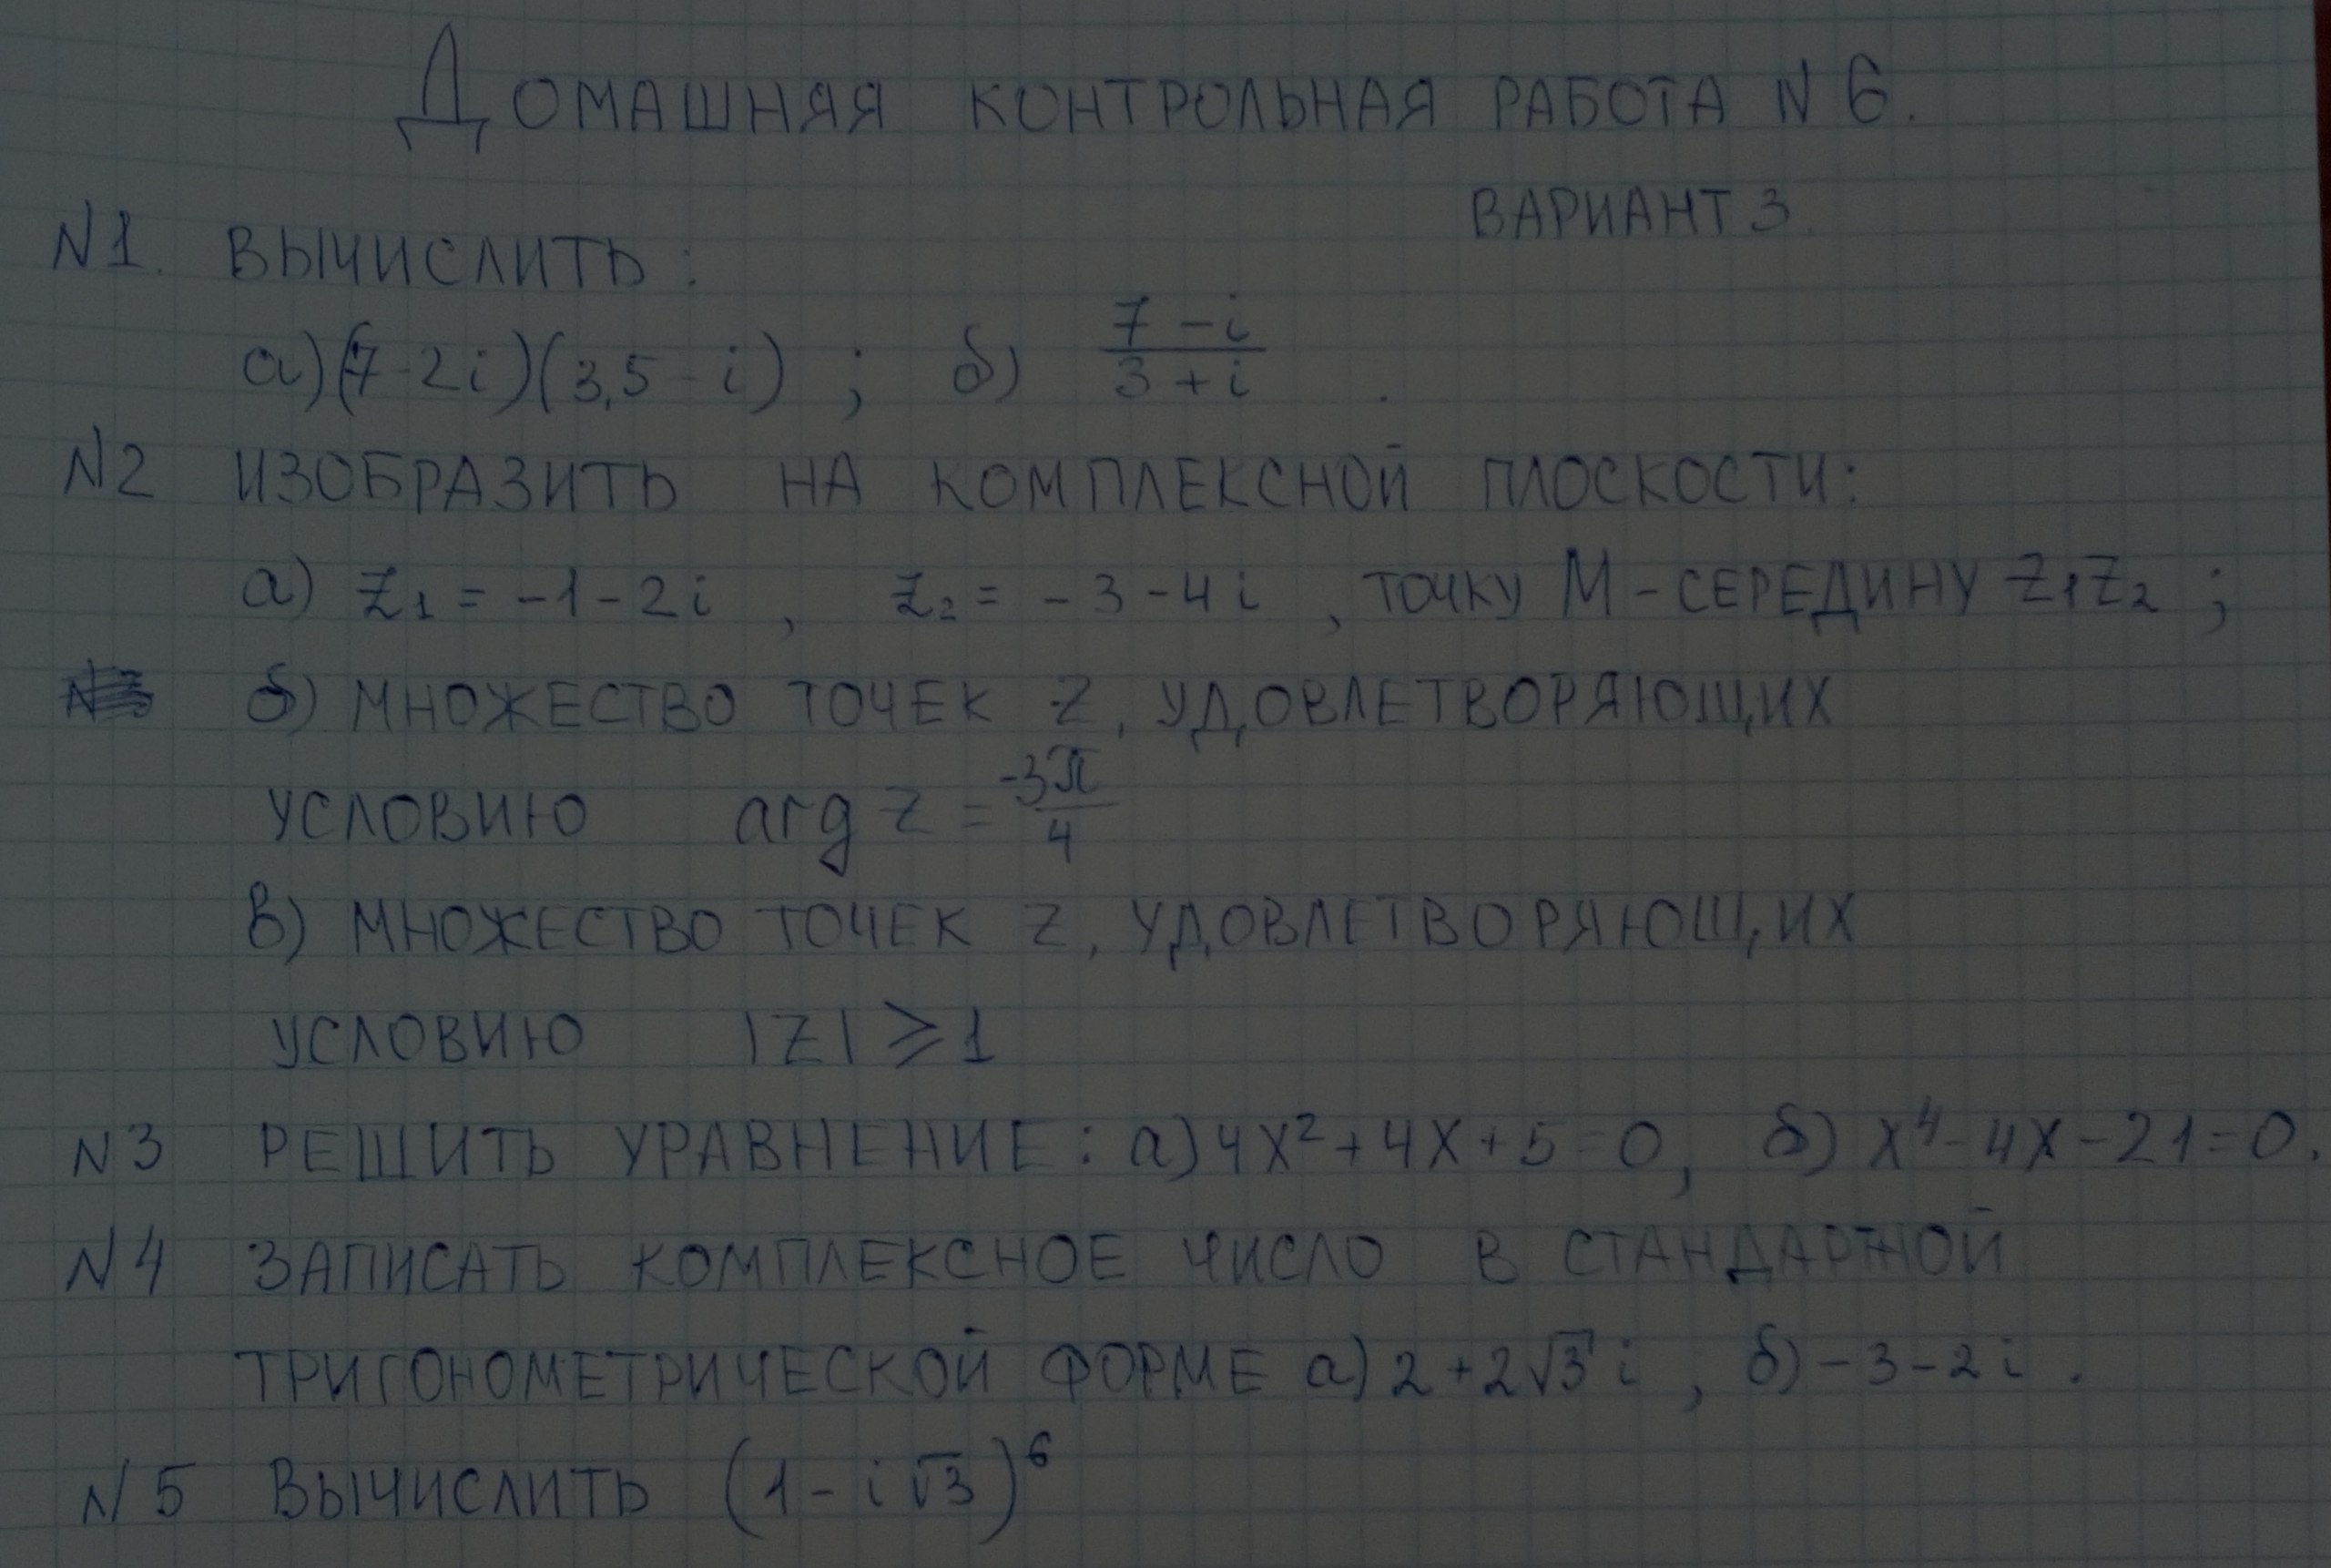 Домашняя контрольная работа N 6.
Вариант 3.
N1. Вычислить:
а) (7-2i)(3,5-i) ; б) \frac{7-i}{3+i} .
N2 Изобразить на комплексной плоскости:
а) z₁ = -1-2i , z₂ = -3-4i , точку M - середину z₁z₂ ;
б) множество точек z, удовлетворяющих
условию arg z = \frac{-3π}{4}
в) множество точек z, удовлетворяющих
условию |z| ⩾ 1
N3 Решить уравнение: а) 4x²+4x+5=0, б) x⁴-4x-21=0.
N4 Записать комплексное число в стандартной
тригонометрической форме а) 2+2√3 i , б) -3-2i .
N5 Вычислить (1-i√3)⁶